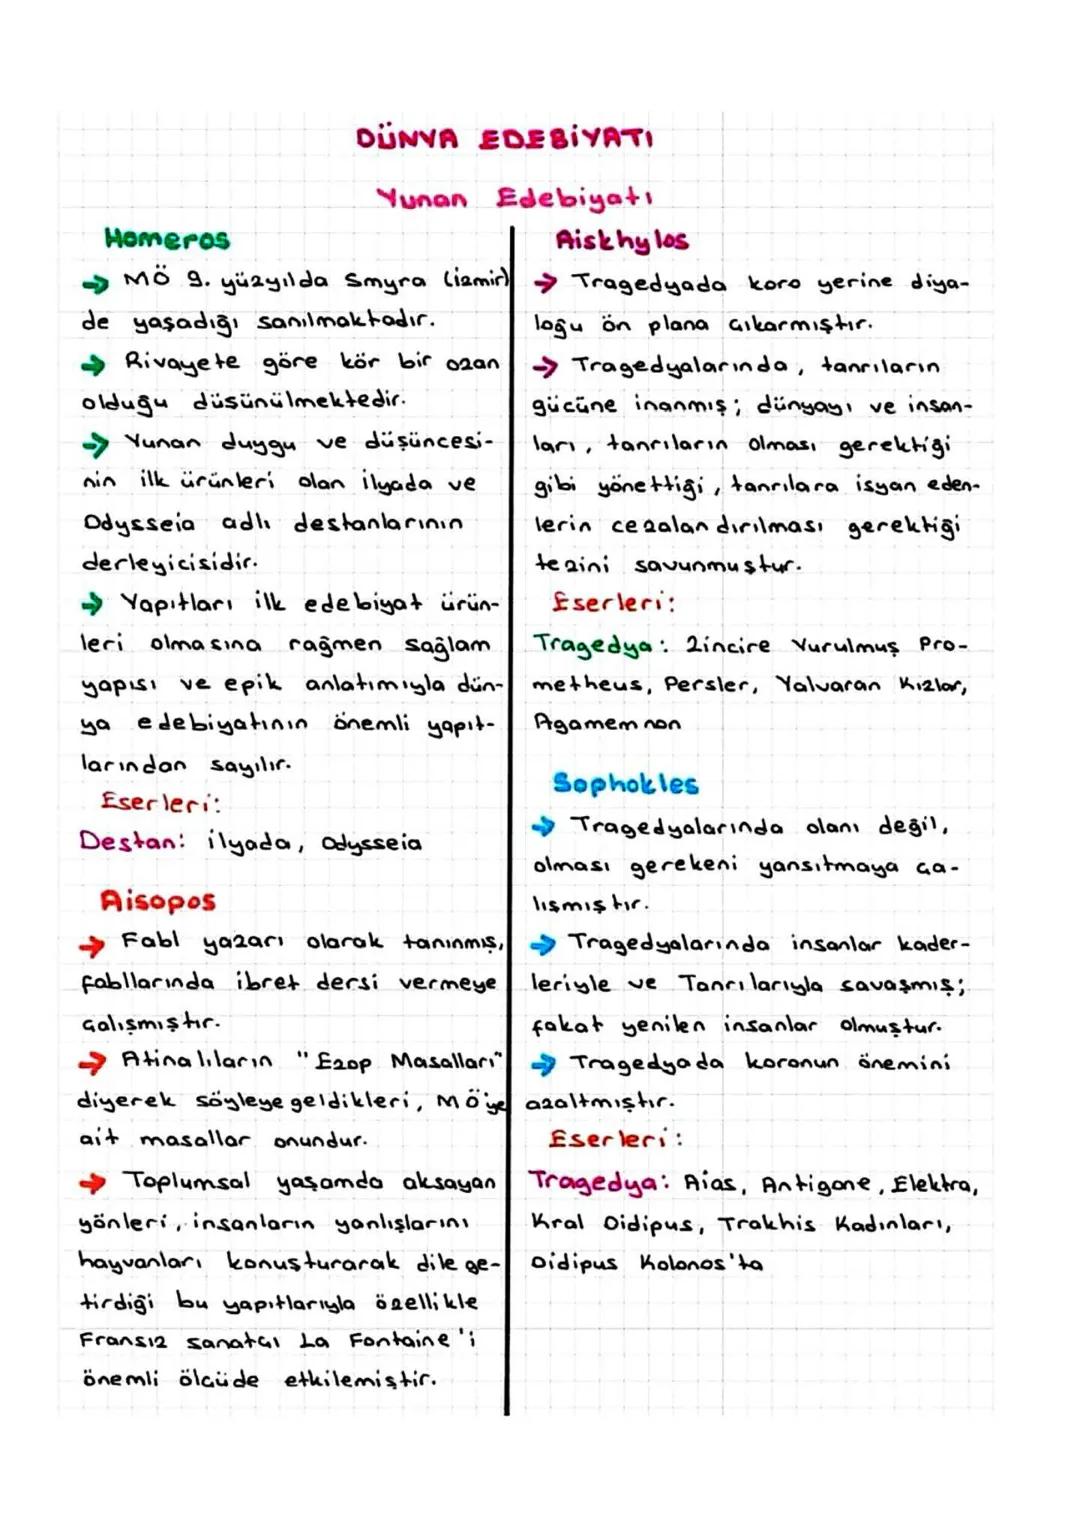 DÜNYA EDEBİYATI
Yunan Edebiyatı
Homeros
→ MÖ 9. yüzyılda Smyra (izmir)
de yaşadığı sanılmaktadır.
→ Rivayete göre kör bir ozan
olduğu düsünülmektedir.
→ Yunan duygu ve düşüncesi-
nin ilk ürünleri olan ilyada ve
Odysseia adlı destanlarının
derleyicisidir.
→ Yapıtları ilk edebiyat ürün-
leri olmasına rağmen sağlam
yapısı ve epik anlatımıyla dün-
ya edebiyatının önemli yapıt-
larından sayılır.
Eserleri:
Destan: ilyada, Odysseia
Aisopos
→ Fabl yazarı olarak tanınmış,
fabllarında ibret dersi vermeye
çalışmıştır.
→ Atinalıların "Ezop Masalları"
diyerek söyleye geldikleri, MÖ'ye
ait masallar onundur.
→ Toplumsal yaşamda aksayan
yönleri, insanların yanlışlarını
hayvanları konuşturarak dile ge-
tirdiği bu yapıtlarıyla özellikle
Fransız sanatçı La Fontaine'i
önemli ölçüde etkilemiştir.
Aiskhylos
→ Tragedyada koro yerine diya-
loğu ön plana çıkarmıştır.
→ Tragedyalarında, tanrıların
gücüne inanmış; dünyayı ve insan-
ları, tanrıların olması gerektiği
gibi yönettiği, tanrılara isyan eden-
lerin cezalandırılması gerektiği
tezini savunmuştur.
Eserleri:
Tragedya: Zincire Vurulmuş Pro-
metheus, Persler, Yalvaran Kızlar,
Agamemnon
Sophokles
→ Tragedyalarında olanı değil,
olması gerekeni yansıtmaya ça-
lışmıştır.
→ Tragedyalarında insanlar kader-
leriyle ve Tanrılarıyla savaşmış;
fakat yenilen insanlar olmuştur.
→ Tragedyada koronun önemini
azaltmıştır.
Eserleri:
Tragedya: Aias, Antigone, Elektra,
Kral Oidipus, Trakhis Kadınları,
Oidipus Kolonos'ta